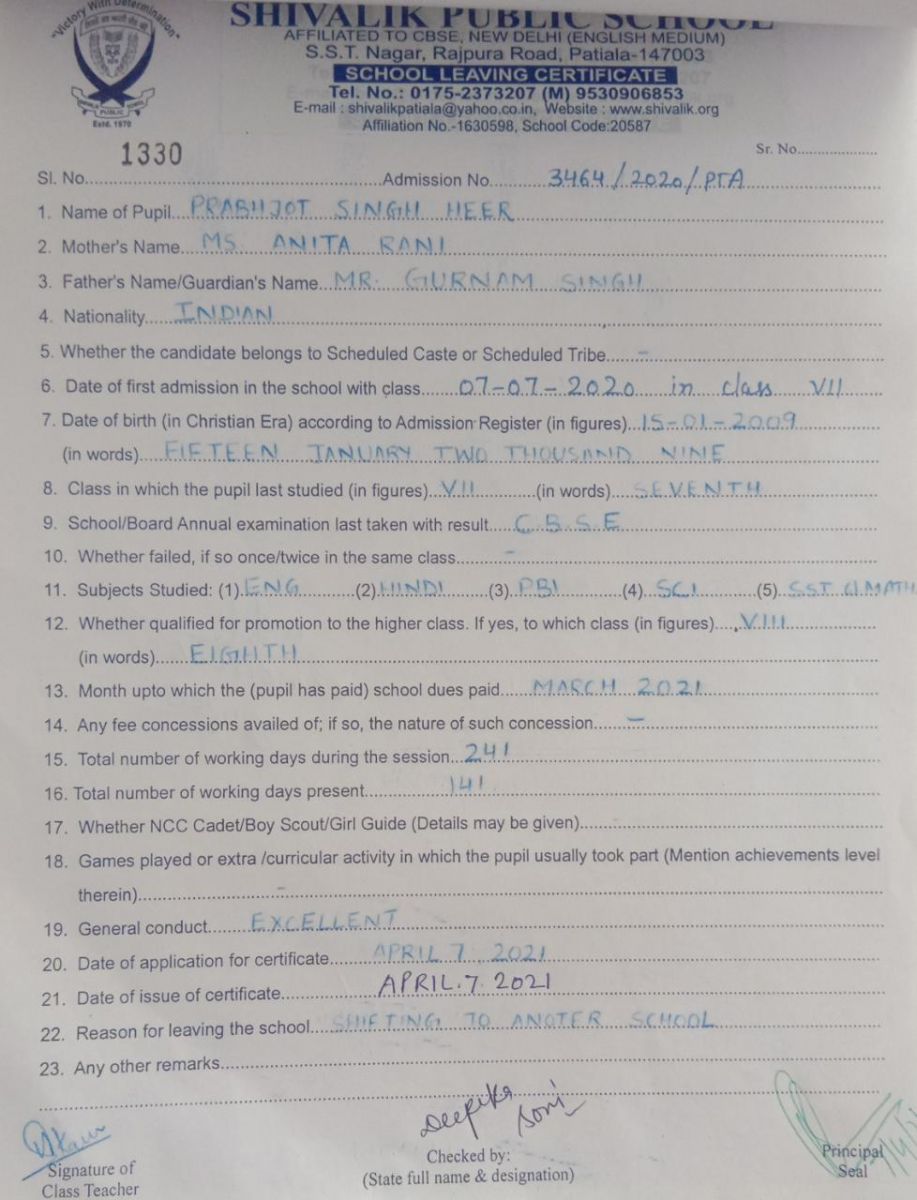 "Victory With Determination"
SHIVALIK PUBLIC SCHOOL
AFFILIATED TO CBSE, NEW DELHI (ENGLISH MEDIUM)
S.S.T. Nagar, Rajpura Road, Patiala-147003
SCHOOL LEAVING CERTIFICATE
Tel. No.: 0175-2373207 (M) 9530906853
E-mail : shivalikpatiala@yahoo.co.in, Website : www.shivalik.org
Affiliation No.-1630598, School Code:20587
SHIVALIK PUBLIC SCHOOL
Estd. 1970
Sr. No.
Sl. No. 1330 Admission No. 3464/2020/PTA
1. Name of Pupil PRABHJOT SINGH HEER
2. Mother's Name MS. ANITA RANI
3. Father's Name/Guardian's Name MR. GURNAM SINGH
4. Nationality INDIAN
5. Whether the candidate belongs to Scheduled Caste or Scheduled Tribe -
6. Date of first admission in the school with class 07-07-2020 in class VII
7. Date of birth (in Christian Era) according to Admission Register (in figures) 15-01-2009
(in words) FIFTEEN JANUARY TWO THOUSAND NINE
8. Class in which the pupil last studied (in figures) VII (in words) SEVENTH
9. School/Board Annual examination last taken with result C.B.S.E
10. Whether failed, if so once/twice in the same class -
11. Subjects Studied: (1) ENG (2) HINDI (3) PBI (4) SCI (5) SST (6) MATH
12. Whether qualified for promotion to the higher class. If yes, to which class (in figures) VIII
(in words) EIGHTH
13. Month upto which the (pupil has paid) school dues paid MARCH 2021
14. Any fee concessions availed of; if so, the nature of such concession -
15. Total number of working days during the session 241
16. Total number of working days present 141
17. Whether NCC Cadet/Boy Scout/Girl Guide (Details may be given) -
18. Games played or extra /curricular activity in which the pupil usually took part (Mention achievements level
therein) -
19. General conduct EXCELLENT
20. Date of application for certificate APRIL 7, 2021
21. Date of issue of certificate APRIL.7. 2021
22. Reason for leaving the school SHIFTING TO ANOTER SCHOOL
23. Any other remarks
Deepika Soni
Signature of
Class Teacher
Checked by:
(State full name & designation)
Principal
Seal